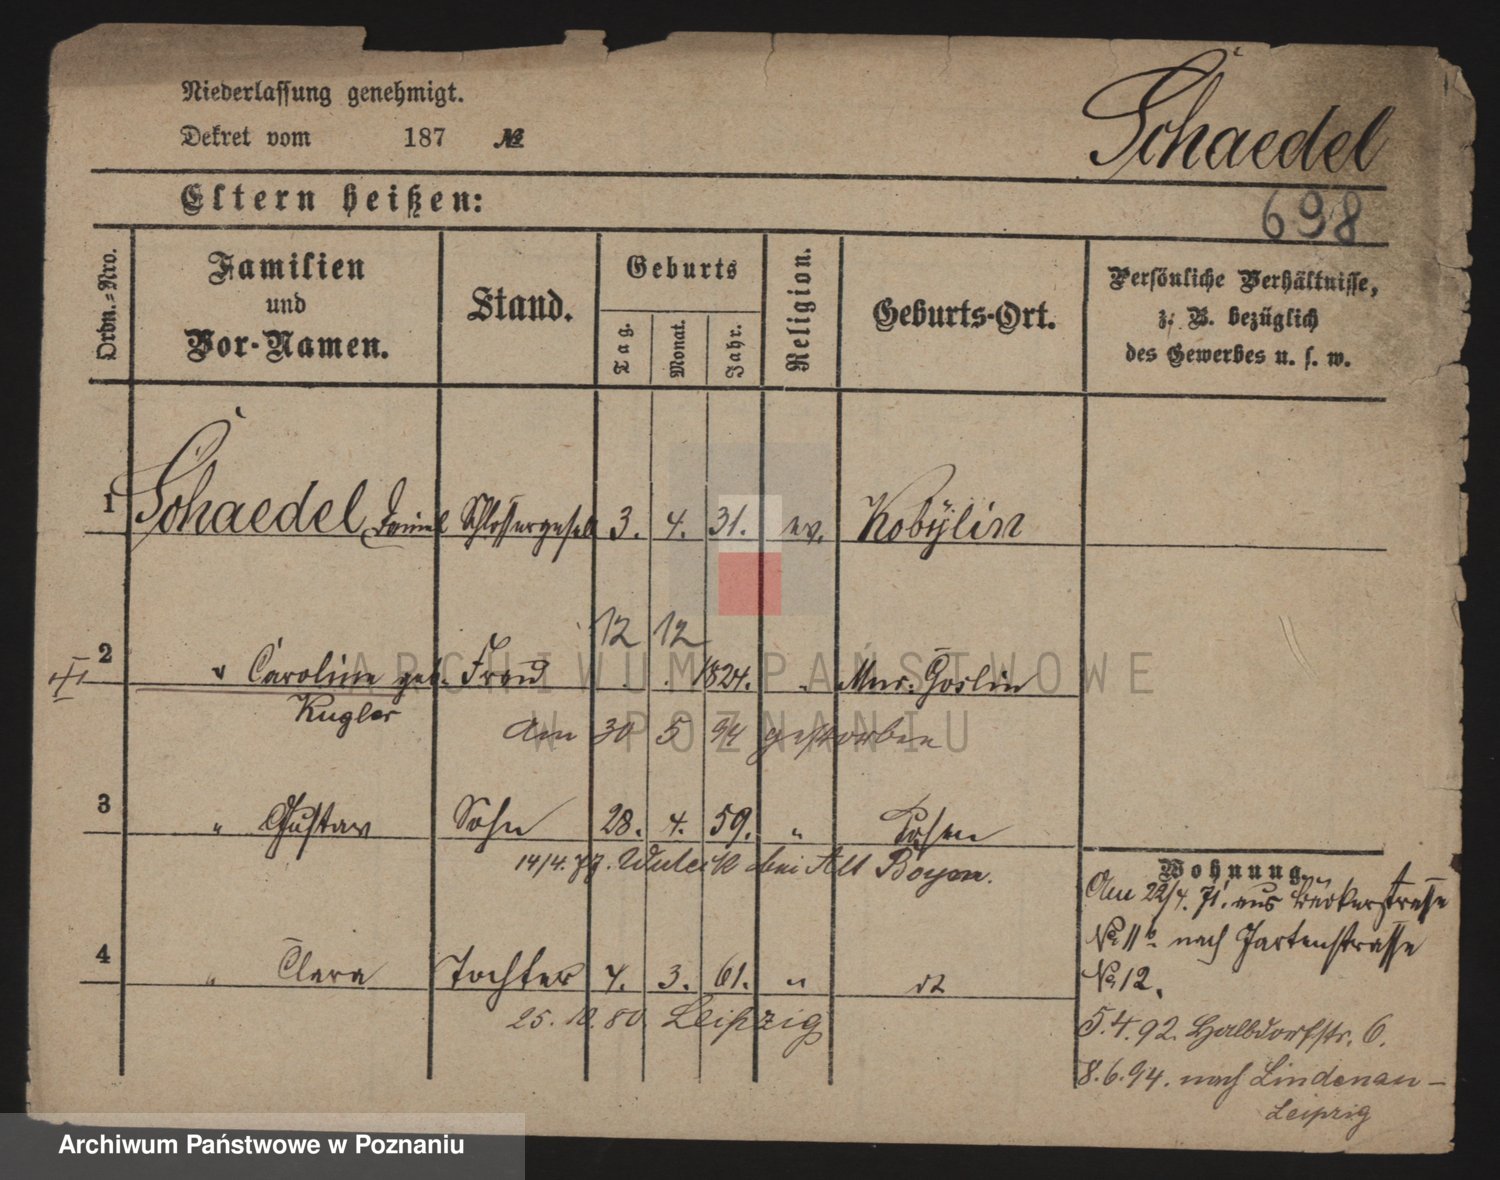 Niederlassung genehmigt.
Dekret vom 187 №
Schaedel
Eltern heißen:
698
Ordn.=Nro.
Familien
und
Vor-Namen.
Stand.
Geburts
Tag.
Monat.
Jahr.
Religion.
Geburts-Ort.
Persönliche Verhältnisse,
z. B. bezüglich
des Gewerbes u. s. w.
1 Schaedel Daniel Schlossergesell 3. 4. 31. ev. Kobylin
12 12
2 " Caroline geb. Frau 1824. " Mur. Goslin
Kugler
am 30 5 94 gestorben
3 " Gustav Sohn 28. 4. 59. " Posen
14/4. 77. bei Alt Boyen.
4 " Clara Tochter 4. 3. 61. " dt
25. 10. 80 Leipzig
Wohnung.
Am 22/4. 71. aus Bäckerstrasse
No 11b. nach Gartenstrasse
No 12.
5.4.92. Halbdorfstr. 6.
8.6.94. nach Lindenau-
Leipzig
ARCHIWUM PAŃSTWOWE
W POZNANIU
Archiwum Państwowe w Poznaniu